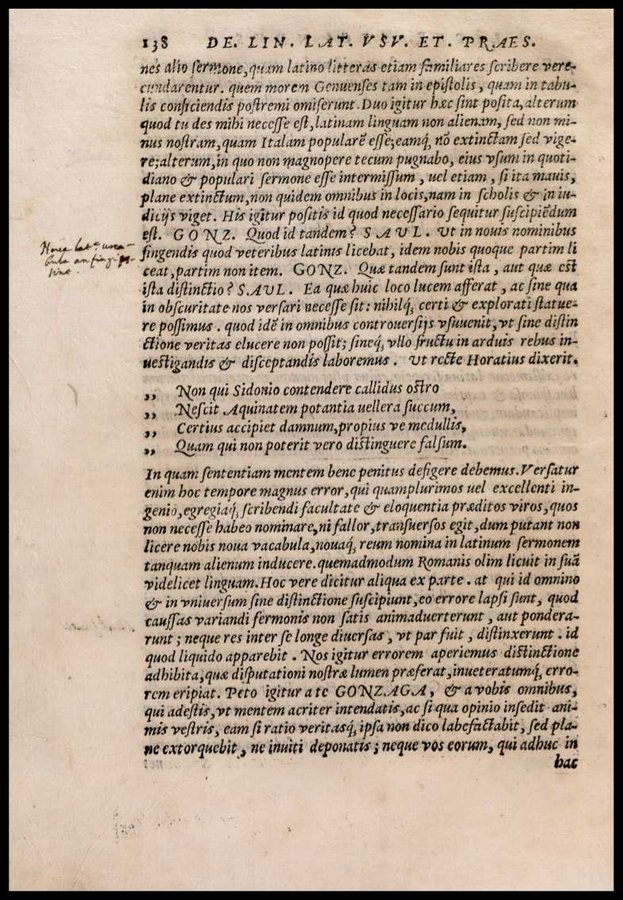 138 DE. LIN. LAT. VSV. ET. PRAES.
nes alio sermone, quam latino litteras etiam familiares scribere vere-
cundarentur. quem morem Genuenses tam in epistolis, quam in tabu-
lis conficiendis postremi omiserunt. Duo igitur hæc sint posita, alterum
quod tu des mihi necesse est, latinam linguam non alienam, sed non mi-
nus nostram, quam Italam popularē esse; eamq́, nō extinctam sed vige-
re; alterum, in quo non magnopere tecum pugnabo, eius vsum in quoti-
diano & populari sermone esse intermissum, uel etiam, si ita mauis,
plane extinctum, non quidem omnibus in locis, nam in scholis & in iu-
dicijs viget. His igitur positis id quod necessario sequitur suscipiēdum
est. GONZ. Quod id tandem? SAVL. Ut in nouis nominibus
fingendis quod veteribus latinis licebat, idem nobis quoque partim li
ceat, partim non item. GONZ. Quæ tandem sunt ista, aut quæ est
ista distinctio? SAVL. Ea quæ huic loco lucem afferat, ac sine qua
in obscuritate nos versari necesse sit: nihilq́, certi & explorati statue-
re possimus. quod idē in omnibus controuersijs vsuuenit, vt sine distin
ctione veritas elucere non possit; sineq́, vllo fructu in arduis rebus in-
uestigandis & disceptandis laboremus. Ut recte Horatius dixerit.
,, Non qui Sidonio contendere callidus ostro
,, Nescit Aquinatem potantia uellera succum,
,, Certius accipiet damnum, propius ve medullis,
,, Quam qui non poterit vero distinguere falsum.
In quam sententiam mentem bene penitus defigere debemus. Versatur
enim hoc tempore magnus error, qui quamplurimos uel excellenti in-
genio, egregiaq́, scribendi facultate & eloquentia præditos viros, quos
non necesse habeo nominare, ni fallor, transuersos egit, dum putant non
licere nobis noua vacabula, nouaq́, rerum nomina in latinum sermonem
tanquam alienum inducere. quemadmodum Romanis olim licuit in suā
videlicet linguam. Hoc vere dicitur aliqua ex parte. at qui id omnino
& in vniuersum sine distinctione suscipiunt, eo errore lapsi sunt, quod
caussas variandi sermonis non satis animaduerterunt, aut pondera-
runt; neque res inter se longe diuersas, vt par fuit, distinxerunt. id
quod liquido apparebit. Nos igitur errorem aperiemus distinctione
adhibita, quæ disputationi nostræ lumen præferat, inueteratumq́, erro-
rem eripiat. Peto igitur a te GONZAGA, & a vobis omnibus,
qui adestis, vt mentem acriter intendatis, ac si qua opinio insedit ani-
mis vestris, eam si ratio veritasq́, ipsa non dico labefactabit, sed pla-
ne extorquebit, ne inuiti deponatis; neque vos eorum, qui adhuc in
hac